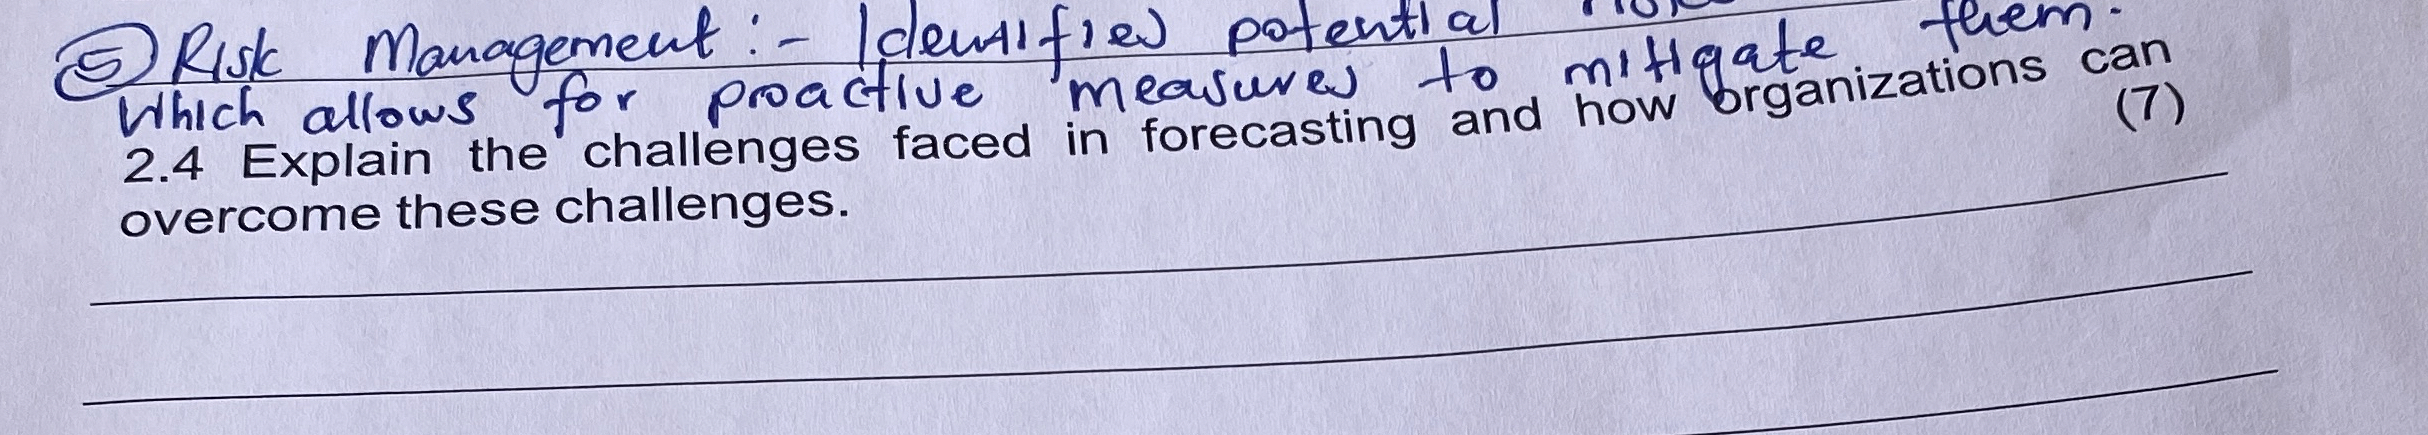 ⑤ Risk Management :- Identifies potential
Which allows for proactive measures to mitigate them.
2.4 Explain the challenges faced in forecasting and how organizations can
overcome these challenges. (7)